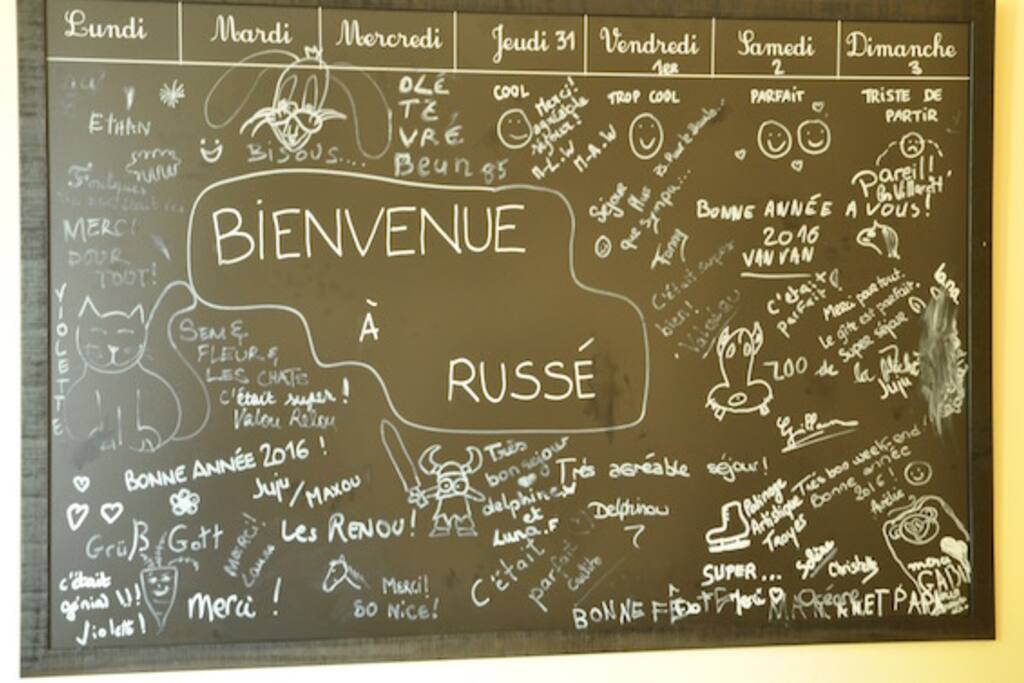 Lundi
Mardi
Mercredi
Jeudi 31
Vendredi
1er
Samedi
2
Dimanche
3
ETHAN
BISOUS....
OLÉ
TE
VRÉ
Beurgs
COOL
Merci!
agréable
séjour!
A-L.W
M-A.W
TROP COOL
PARFAIT
TRISTE DE
PARTIR
Pareil!
MERCI
POUR
TOUT!
BIENVENUE
À
RUSSÉ
Séjour
Plus
que sympa...
Fanny
BONNE ANNÉE A VOUS!
2016
VANVAN
C'était super
bien!
c'était
parfait
Merci pour tout.
Le gîte est parfait.
Super séjour
ZOO de
la flèche
Juju
VIOLETTE
SEM &
FLEUR &
LES CHATS
c'était super!
Valou Relou
BONNE ANNÉE 2016 !
Juju/MAXOU
LES RENOU!
Très
bon séjour
delphine.W
et
Luna.F
Très agréable séjour!
Delphinou
Très bon week-end!
Bonne année
2016!
Patinage
Artistique
Troyes
Grüß Gott
MERCI!
Laura
c'était
génial !!!
Violette!
Merci !
MERCI!
SO NICE!
C'était
parfait
SUPER...
Merci
Christelle
Océane
BONNE FÊTE
merci